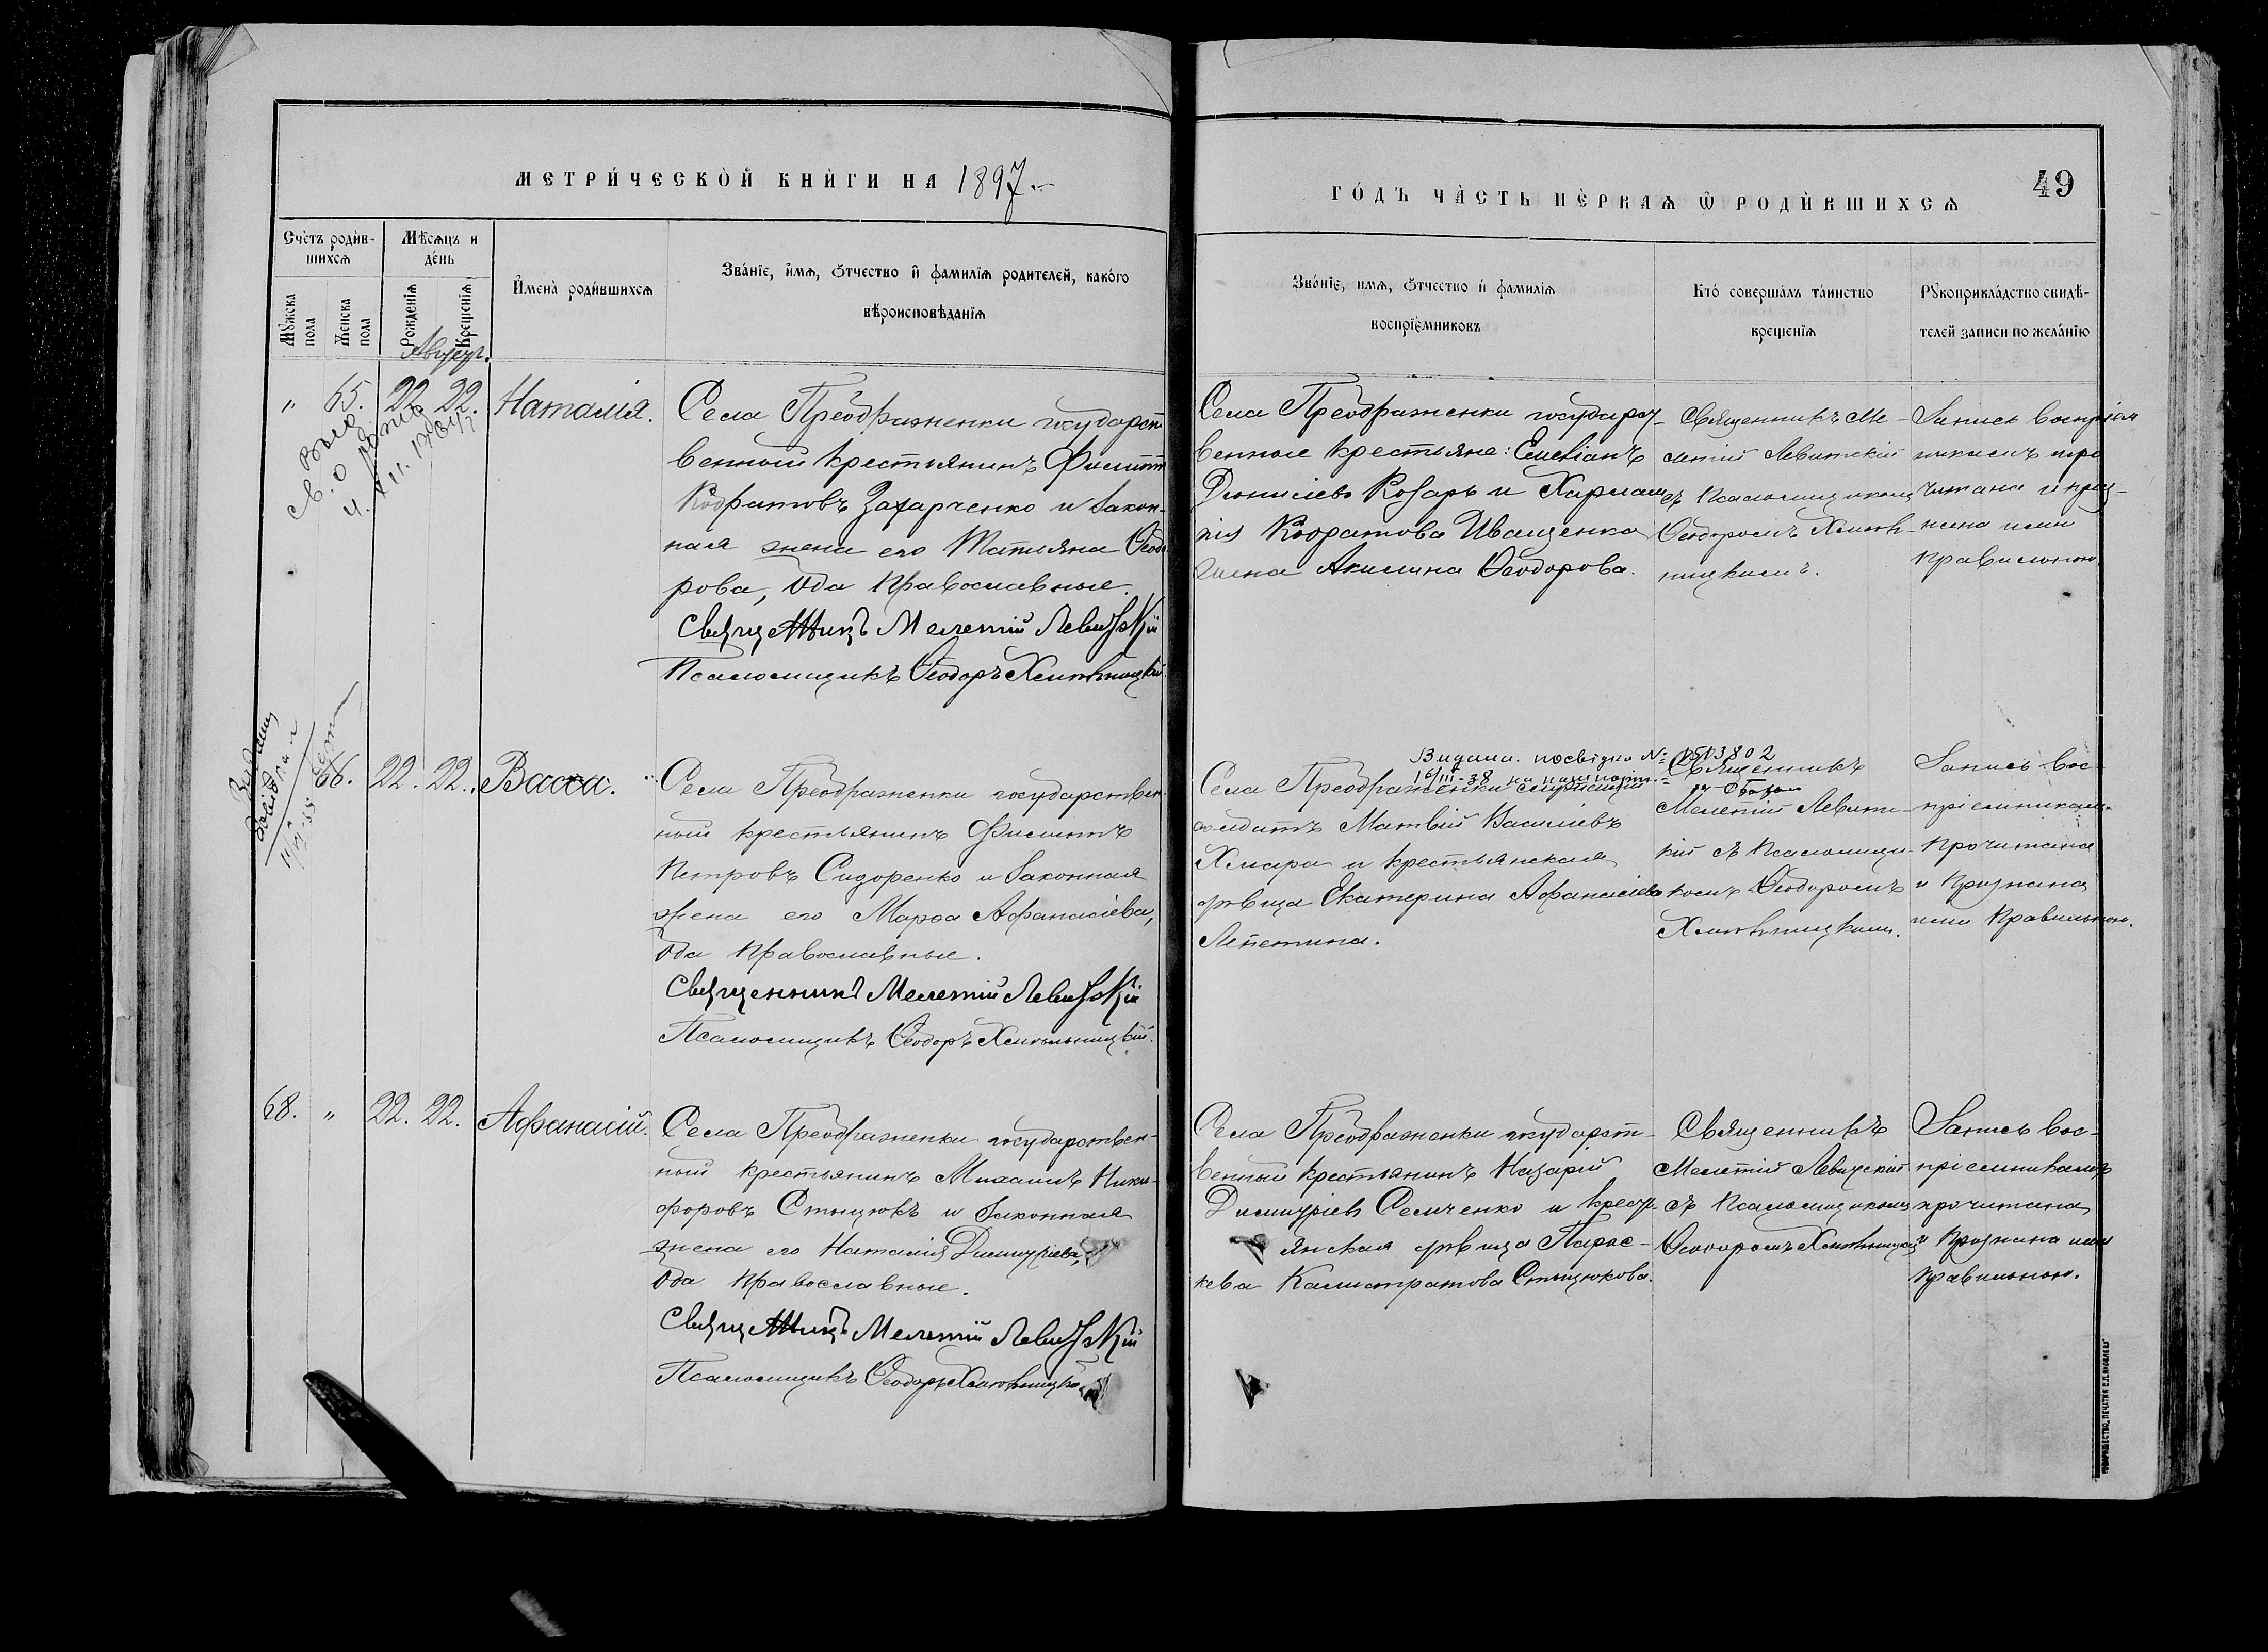 МЕТРИ́ЧЕСКО̀Й КНЍГИ НА 1897.
ГО́ДЪ ЧА̀СТЬ ПЕ́РВАѦ Ѽ РОДИ́ВШИХСѦ
49
Сче́тъ роди́в-
шихсѧ
Мѣ́сѧцъ и
де́нь
Мꙋжска
пола
Женска
пола
Рожденїѧ
Крещенїѧ
И҆мена̀ роди́вшихсѧ
Зва́нїе, и҆мѧ, ѻ҆тчество и҆ фамилїѧ родителей, како́го
вѣроисповѣданїѧ
Зва́нїе, имѧ, ѻ҆тчество и҆ фамилїѧ
воспрїе́мниковъ
Кто́ соверша́лъ та́инство
крещенїѧ
Рꙋкоприкла́дство свидѣ-
телей записи по жела́нїю
Август.
" 65. 22. 22. Наталія.
Села Преображенки государст
венный крестьянинъ Филиппъ
Кодратовъ Захарченко и закон-
ная жена его Татіяна Ѳеодо
рова, оба православные.
Священникъ Мелетій Левитскій
Псаломщикъ Ѳеодоръ Хмѣльницкій
Села Преображенки государст-
венные крестьяне: Емеліанъ
Діонисіевъ Козарь и
Кодратова Иващенка
жена Акилина Ѳеодорова.
Священникъ Ме-
летій Левитскій
съ Псаломщикомъ
Ѳеодоромъ Хмѣль-
ницкимъ.
Запись воспріем
никамъ про
читана и приз-
нана ими
правильною.
66. 22. 22. Васса.
Села Преображенки государствен
ный крестьянинъ Филиппъ
Петровъ Сидоренко и законная
жена его Марѳа Афанасіева,
оба православные.
Священникъ Мелетій Левитскій
Псаломщикъ Ѳеодоръ Хмѣльницкій.
Видана посвідка № 1513802
16/III-38
Села Преображенки
Матвій Василіевъ
Хмара и крестьянская
дѣвица Екатерина Афанасіева
Лепетина.
Священникъ
Мелетій Левит-
кій съ Псаломщи-
комъ Ѳеодоромъ
Хмѣльницкимъ.
Запись вос-
пріемникамъ
прочитана
и признана
ими правильною.
68. " 22. 22. Афанасій.
Села Преображенки государствен-
ный крестьянинъ Михаилъ Ники-
форовъ Стыцюкъ и законная
жена его Наталія Димитріева,
оба православные.
Священникъ Мелетій Левитскій
Псаломщикъ Ѳеодоръ Хмѣльницкій
Села Преображенки государст-
венный крестьянинъ Назарій
Димитріевъ Семченко и крест-
янская дѣвица Парас-
кева Калистратова Стыцюкова.
Священникъ
Мелетій Левитскій
съ Псаломщикомъ
Ѳеодоромъ Хмѣльницкимъ
Запись вос-
пріемникамъ
прочитана
и признана ими
правильною.